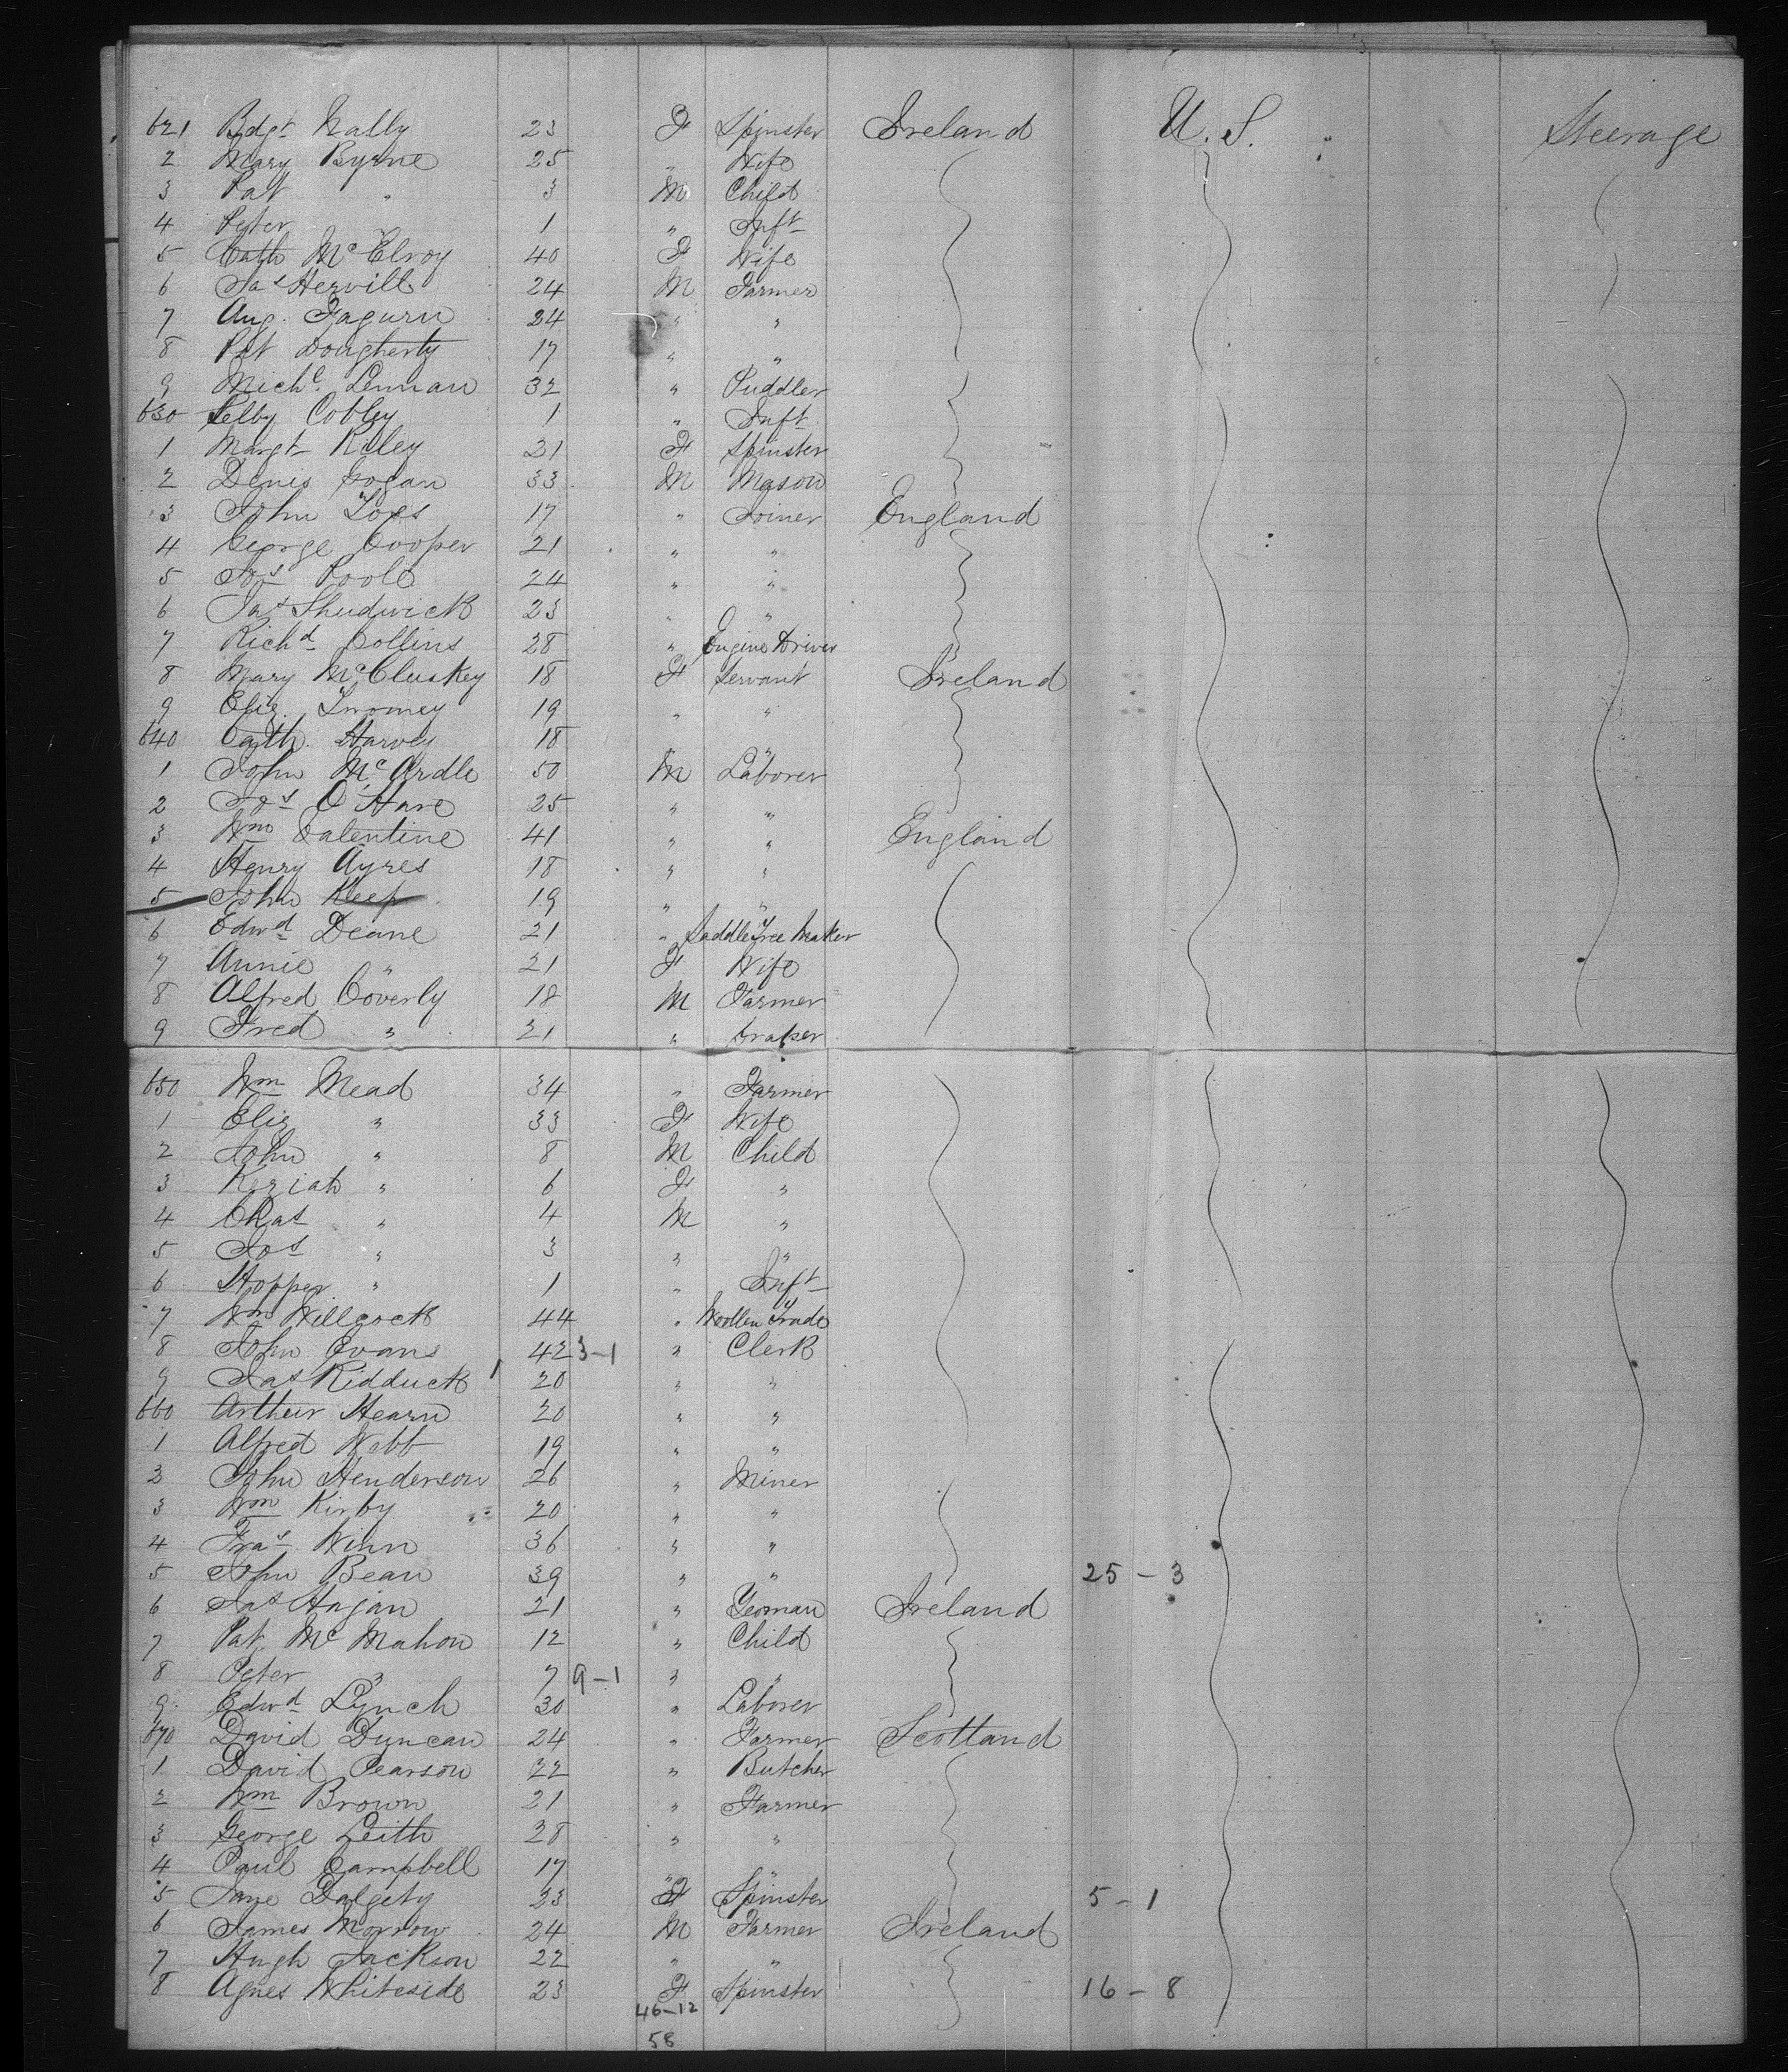 621 Bdgt Nally 23 F Spinster Ireland U.S. Steerage
2 Mary Byrne 25 " Wife
3 Pat " 3 M Child
4 Peter 1 " Inft
5 Cath McElroy 40 F Wife
6 Jas Hervill 24 M Farmer
7 Aug. Fagurn 24 " "
8 Pat Dougherty 17 " "
9 Michl. Lennan 32 " Puddler
630 Selby Cobley 1 " Inft
1 Margt Riley 21 F Spinster
2 Denis Gogan 33 M Mason
3 John 17 " Joiner England
4 George Cooper 21 " "
5 Jos Poole 24 " "
6 Jas Shudwick 23 " "
7 Richd Collins 28 " Engine Driver
8 Mary McCluskey 18 F Servant Ireland
9 Eliz. Twomey 19 " "
640 Cath. Harvey 18 " "
1 John McArdle 50 M Laborer
2 Jos O'Hare 25 " "
3 Wm Valentine 41 " " England
4 Henry Ayres 18 " "
5 John Keep 19 " "
6 Edwd Deane 21 " Saddle Tree Maker
7 Annie " 21 F Wife
8 Alfred Coverly 18 M Farmer
9 Fred " 21 " Draper
650 Wm Mead 34 " Farmer
1 Eliz " 33 F Wife
2 John " 8 M Child
3 Keziah " 6 F "
4 Chas " 4 M "
5 Jos " 3 " "
6 Hopper " 1 " Inft
7 Wm Willcock 44 " Woollen Trade
8 John Evans 42 3-1 " Clerk
9 Jas Kidduck 20 " "
660 Arthur Hearn 20 " "
1 Alfred Webb 19 " "
2 John Henderson 26 " Miner
3 Wm Kirby 20 " "
4 Fras Winn 36 " "
5 John Bean 39 " " 25-3
6 Jas Hagan 21 " Yeoman Ireland
7 Pat McMahon 12 " Child
8 Peter " 7 9-1 " "
9 Edwd Lynch 30 " Laborer
670 David Duncan 24 " Farmer Scotland
1 David Pearson 22 " Butcher
2 Wm Brown 21 " Farmer
3 George Leith 28 " "
4 Paul Campbell 17 " "
5 Jane Dalgety 23 F Spinster 5-1
6 James Morrow 24 M Farmer Ireland
7 Hugh Jackson 22 " "
8 Agnes Whiteside 23 F Spinster 16-8
46-12
58